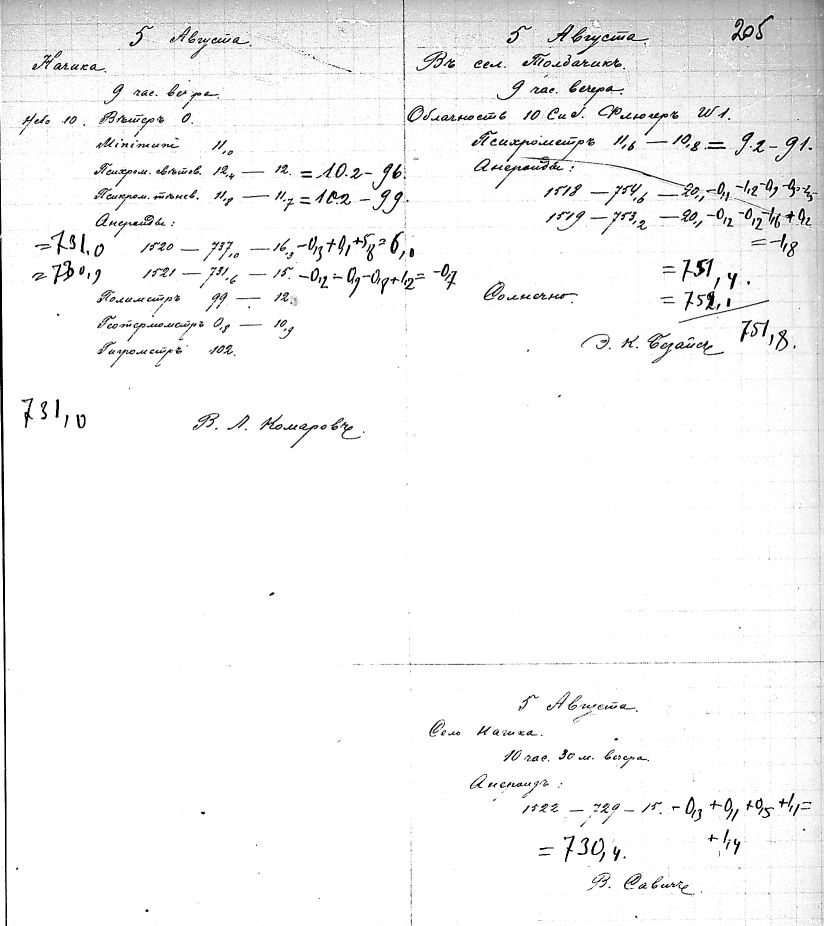 5 Августа.
Начика.
9 час. вечера.
Небо 10. Вѣтеръ 0.
Minimum 11,0
Психром. свѣтов. 12,4 — 12. = 10.2 - 96.
Психром. тѣнев. 11,8 — 11,7 = 10.2 - 99.
Анероиды:
= 731,0 1520 — 737,0 — 16,3 - 0,3 + 0,1 + 5,8 = 6,0
= 730,9 1521 — 731,6 — 15. - 0,2 - 0,9 - 0,8 + 1,2 = -0,7
Полиметръ 99 — 12.
Геотермометръ 0,8 — 10,9
Гигрометръ 102.
731,0
В. Л. Комаровъ.
205
5 Августа.
Въ сел. Толбачикъ.
9 час. вечера.
Облачность 10 Cu б. Флюгеръ W 1.
Психрометръ 11,6 — 10,8 = 9.2 - 91.
Анероиды:
1518 — 754,6 — 20,1 - 0,1 - 1,2 - 0,9
1519 — 753,2 — 20,1 - 0,2 - 0,2 - 1,6 + 0,2
= -1,8
= 751,4.
Солнечно. = 752,1
751,8.
Э. К. Безайсъ
5 Августа.
Село Начика.
10 час. 30 м. вечера.
Анероидъ:
1522 — 729 — 15. - 0,3 + 0,1 + 0,5 + 1,1 =
+ 1,4
= 730,4.
В. Савичъ.